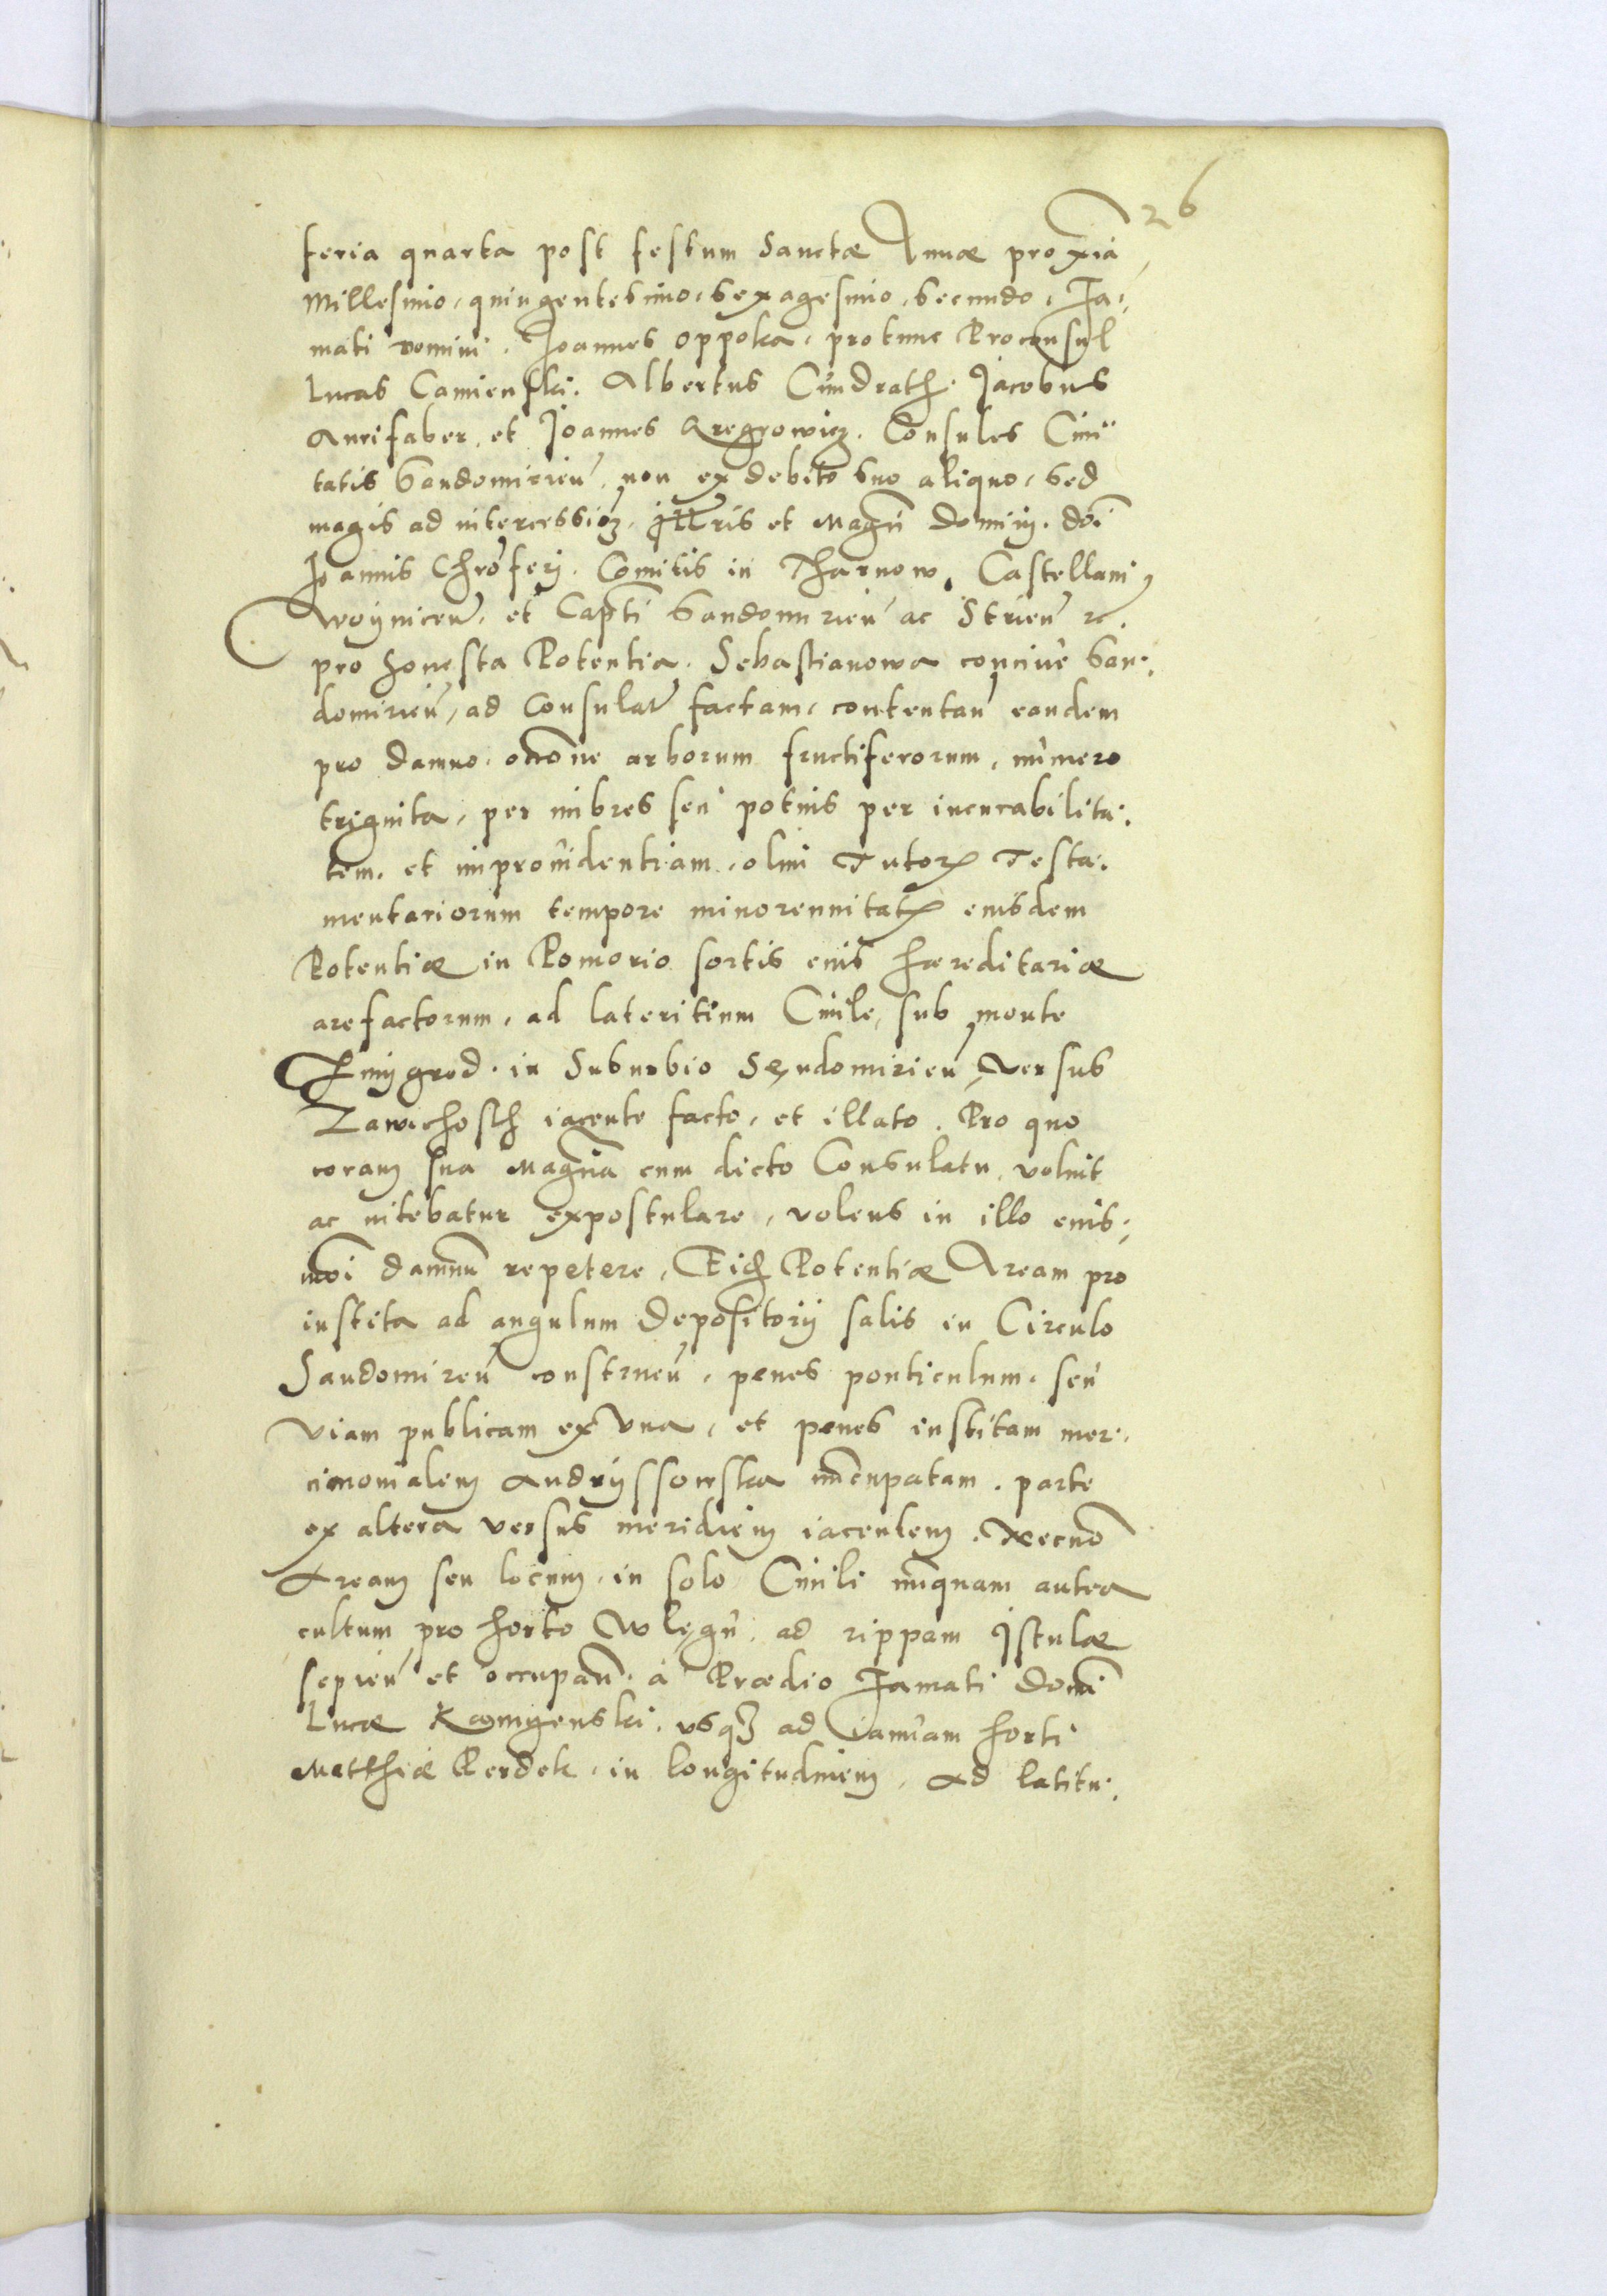 26
feria quarta post festum Sanctæ Annæ proxiā
Millesimo, quingentesimo, sexagesimo, secundo, Fa,
mati domini. Joannes oppoka, protunc Proconsul
Lucas Camienski. Albertus Cundrath. Jacobus
Aurifaber, et Joannes Gregrowicz. Consules Ciui
tatis Sandomirień, non ex debito suo aliquo, sed
magis ad intercessioē, jllris et Magn̄ Dominj. doī
Joannis Chroferj. Comitis in Tharnow, Castellani
Woynicen̄, et Capti Sandomirień ac Strień zc.
pro honesta Potentia. Sebastianowa conciue San
domirień, ad Consulatū factam, contentań eandem
pro damno, orōne arborum fructiferorum, numero
triginta, per imbres seu potius per incurabilita
tem, et improuidentiam, olim Tutorꝝ Testa
mentariorum tempore minorennitatꝭ eiusdem
Potentiæ in Pomorio sortis eius hæreditariæ
arefactorum, ad lateritium Ciuile, sub monte
Zmijgrod. in Suburbio Sendomirień, versus
Zawichosth iacente facto, et illato. Pro quo
coram sua Magn̄a cum dicto Consulatu, voluit
ac nitebatur expostulare, volens in illo eius
moi damnū repetere, Eidꝫ Potentiæ Aream pro
instita ad angulum Depositorij salis in Circulo
Sandomireń construeń, penes ponticulum, seu
viam publicam ex vna, et penes institam mer
cimonialem Andrijssowska nūcupatam, parte
ex altera versus meridiem iacentem. Necnō
Aream seu locum, in solo Ciuili nunquam antea
cultum pro horto W lęgu, ad rippam Jstulæ
sepień et occupań, à Prædio Famati Domī
Lucæ Kamyenski, vsqꝫ ad ianuam horti
Matthiæ Perdek, in longitudinem, Ad latitu